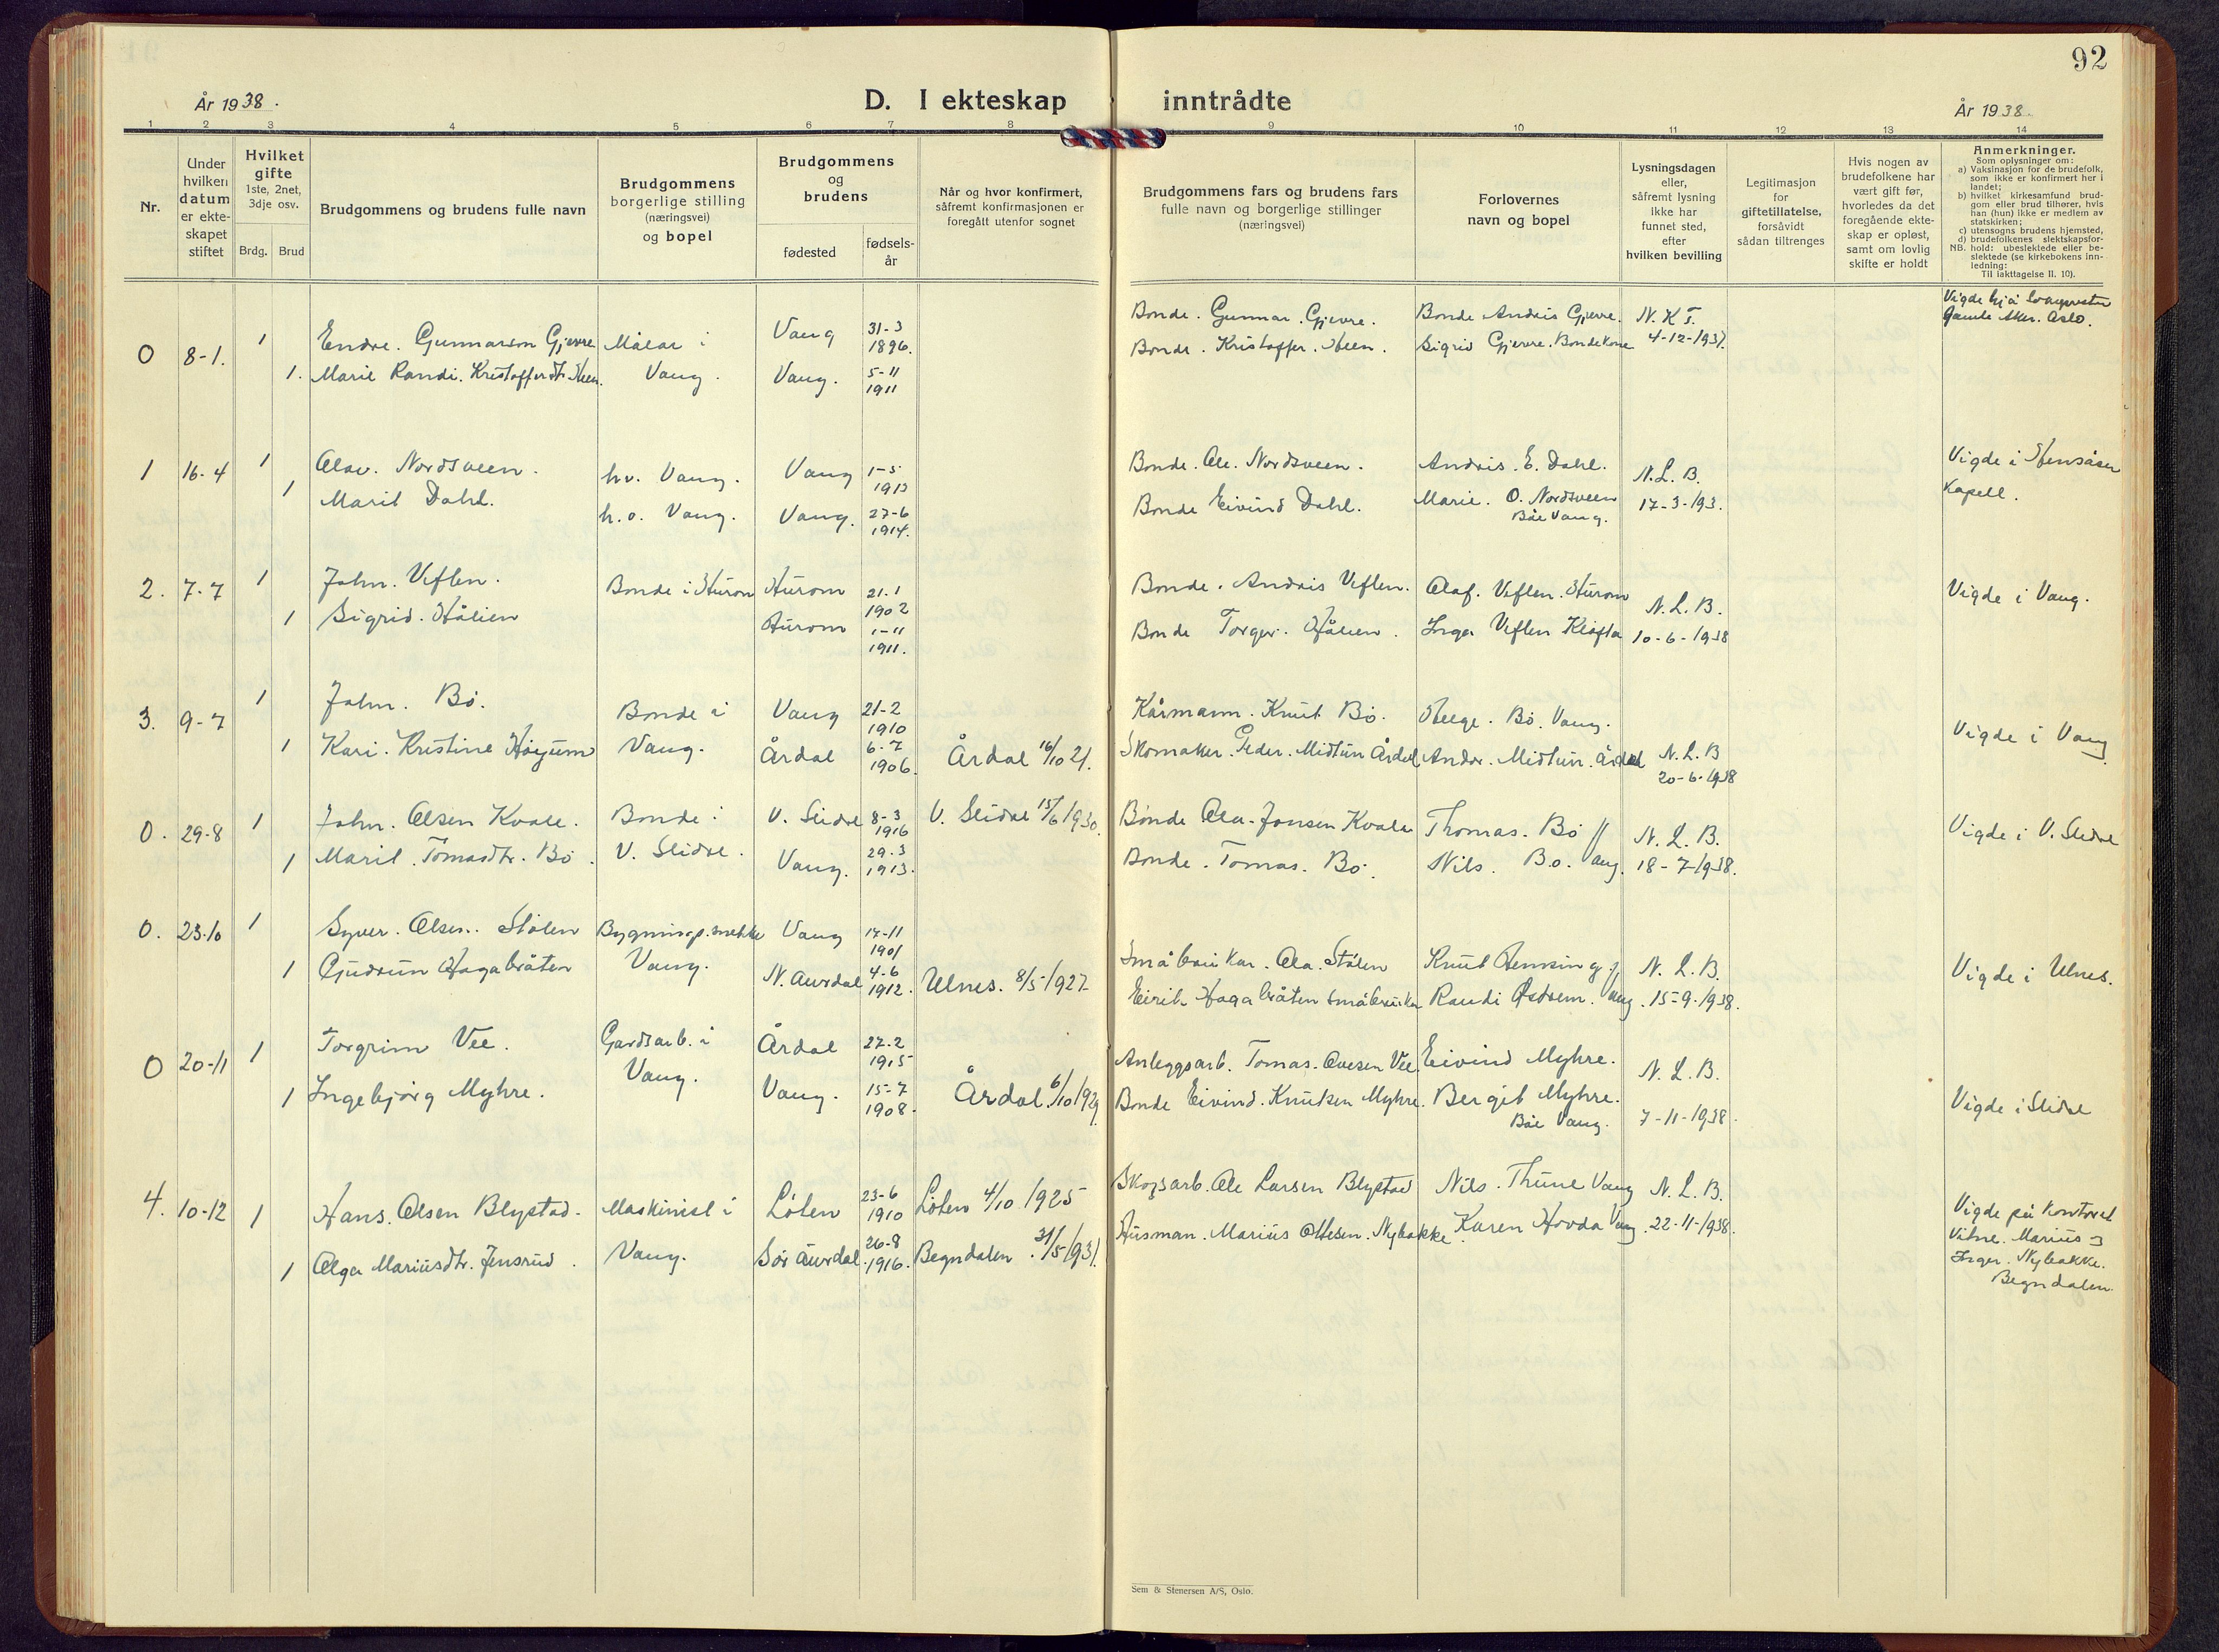 92
År 1938.
D. I ekteskap inntrådte
År 1938.
1 2 3 4 5 6 7 8 9 10 11 12 13 14
Nr.
Under
hvilken
datum
er ekte-
skapet
stiftet
Hvilket
gifte
1ste, 2net,
3dje osv.
Brdg. Brud
Brudgommens og brudens fulle navn
Brudgommens
borgerlige stilling
(næringsvei)
og bopel
Brudgommens
og
brudens
fødested
fødsels-
år
Når og hvor konfirmert,
såfremt konfirmasjonen er
foregått utenfor sognet
Brudgommens fars og brudens fars
fulle navn og borgerlige stillinger
(næringsvei)
Forlovernes
navn og bopel
Lysningsdagen
eller,
såfremt lysning
ikke har
funnet sted,
efter
hvilken bevilling
Legitimasjon
for
giftetillatelse,
forsåvidt
sådan tiltrenges
Hvis nogen av
brudefolkene har
vært gift før,
hvorledes da det
foregående ekte-
skap er opløst,
samt om lovlig
skifte er holdt
Anmerkninger.
Som oplysninger om:
a) Vaksinasjon for de brudefolk,
som ikke er konfirmert her i
landet;
b) hvilket kirkesamfund brud-
gom eller brud tilhører, hvis
han (hun) ikke er medlem av
statskirken;
c) utensogns brudens hjemsted,
d) brudefolkenes slektskapsfor-
NB. hold: ubeslektede eller be-
slektede (se kirkebokens inn-
ledning:
Til iakttagelse II. 10).
0 8-1. 1 Endre. Gunnarson Gjevre Målar i Vang 31-3 1896. Bonde. Gunnar. Gjevre. Bonde Andris Gjevre. N. K T. Vigde hjå
1. Marie Randi. Kristofferdtr. Heen. Vang. Vang. 5-11 1911 Bonde. Kristoffer. Heen. Sigrid Gjevre. Bondekone 4-12-1937. Gamle Aker. Oslo.
1 16-4 1 Olav. Nordsveen. hv. Vang. Vang 1-5 1913 Bonde. Ole. Nordsveen. Andris. E. Dahl. N. L. B. Vigde i Hensåsen
1 Marit Dahl. h.o. Vang. Vang. 27-6 1914. Bonde Eivind Dahl. Marie. O. Nordsveen 17-3-193. Kapell.
Båe Vang.
2. 7-7 1 John. Veflen. Bonde i Hurom Hurom 21-1 1902 Bonde. Andris Veflen. Olaf. Veflen. Hurom N. L. B. Vigde i Vang.
1 Sigrid. Hålien Hurom 1-11 1911. Bonde Torger. Hålien. Inga Veflen Kløfta 10-6-1938
3. 9-7 1 John. Bø. Bonde i Vang 21-2 1910 Kårmann. Knut Bø. Helge. Bø. Vang. Vigde i Vang
1 Kari. Kristine Høyum Vang. Årdal 6-7 1906. Årdal 16/10 21. Skomaker. Peder. Midtun Årdal Andr. Midtun. Årdal N. L. B 20-6-1938
0. 29-8 1 John. Olsen Kvale. Bonde i V. Slidre 8-3 1916 V. Slidre 15/6 1930. Bonde Ola. Jonsen Kvale Thomas. Bø N. L. B. Vigde i V. Slidre
1 Marit. Tomasdtr. Bø. V. Slidre. Vang. 29-3 1913. Bonde. Tomas. Bø. Nils. Bø. Vang. 18-7-1938.
0. 23-10 1 Syver. Olsen. Stølen Bygnings.snekker Vang 17-11 1901 Småbrukar. Ola. Stølen Knut N. L. B. Vigde i Ulnes.
1 Gudrun Hagabråten Vang. N. Aurdal 4-6 1912. Ulnes. 8/5-1927 Eirik Hagabråten småbruker Randi Vang. 15-9-1938.
0 20-11 1 Torgrim Vee. Gardsarb. i Årdal 27-2 1915 Anleggsarb. Tomas. Vee Eivind Myhre. N. L. B.
1 Ingebjørg Myhre. Vang. Vang. 15-7 1908. Årdal. 6/10 1929 Bonde Eivind. Knutsen Myhre. Bergit Myhre. 7-11-1938. Vigde i Slidre
Båe Vang.
4. 10-12 1 Hans. Olsen Blystad. Maskinist i Løten 23-6 1910 Løten 4/10 1925 Skogsarb. Ole Larsen Blystad Nils. Thune Vang N. L. B. Vigde på kontoret
1 Olga Mariusdtr. Jensrud. Vang. Sør Aurdal. 26-8 1916. Begndalen. 31/5 1931. Husman. Marius Ottesen. Nybakke. Karen Hovda Vang. 22-11-1938. Vitne. Marius og
Inger. Nybakke.
Begndalen.
Sem & Stenersen A/S, Oslo.